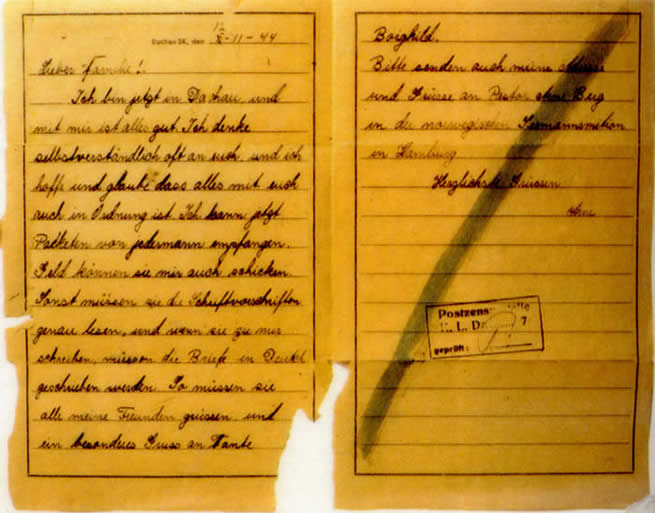 Dachau 3K, den 12-11-44
Lieber Familie!
Ich bin jetzt in Dachau und
mit mir ist alles gut. Ich denke
selbstverständlich oft an euch, und ich
hoffe und glaube dass alles mit euch
auch in Ordnung ist. Ich kann jetzt
Packeten von jedermann empfangen.
Geld können sie mir auch schicken
Sonst müssen sie die Schriftvorschriften
genau lesen, und wenn sie zu mir
schreiben, müssen die Briefe in Deutsch
geschrieben werden. So müssen sie
alle meine Freunden grüssen und
ein besonderes Gruss an Tante
Borghild.
Bitte senden auch meine Adresse
und Grüsse an Pastor Berg
in der norwegischen Seemannsmition
in Hamburg
Herzlichste Grüssen
Postzens
K. L. Da 7
geprüft: